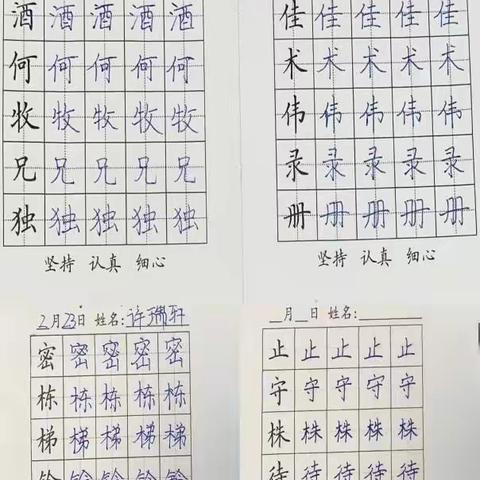 酒 酒 酒 酒 酒
何 何 何 何 何
牧 牧 牧 牧 牧
兄 兄 兄 兄 兄
独 独 独 独 独
坚持 认真 细心
佳 佳 佳 佳 佳
术 术 术 术 术
伟 伟 伟 伟 伟
录 录 录 录 录
册 册 册 册 册
坚持 认真 细心
2月23日 姓名:许瑞轩
密 密 密 密 密
栋 栋 栋 栋 栋
梯 梯 梯 梯 梯
月 日 姓名:
止 止 止 止 止
守 守 守 守 守
株 株 株 株 株
待 待 待 待 待